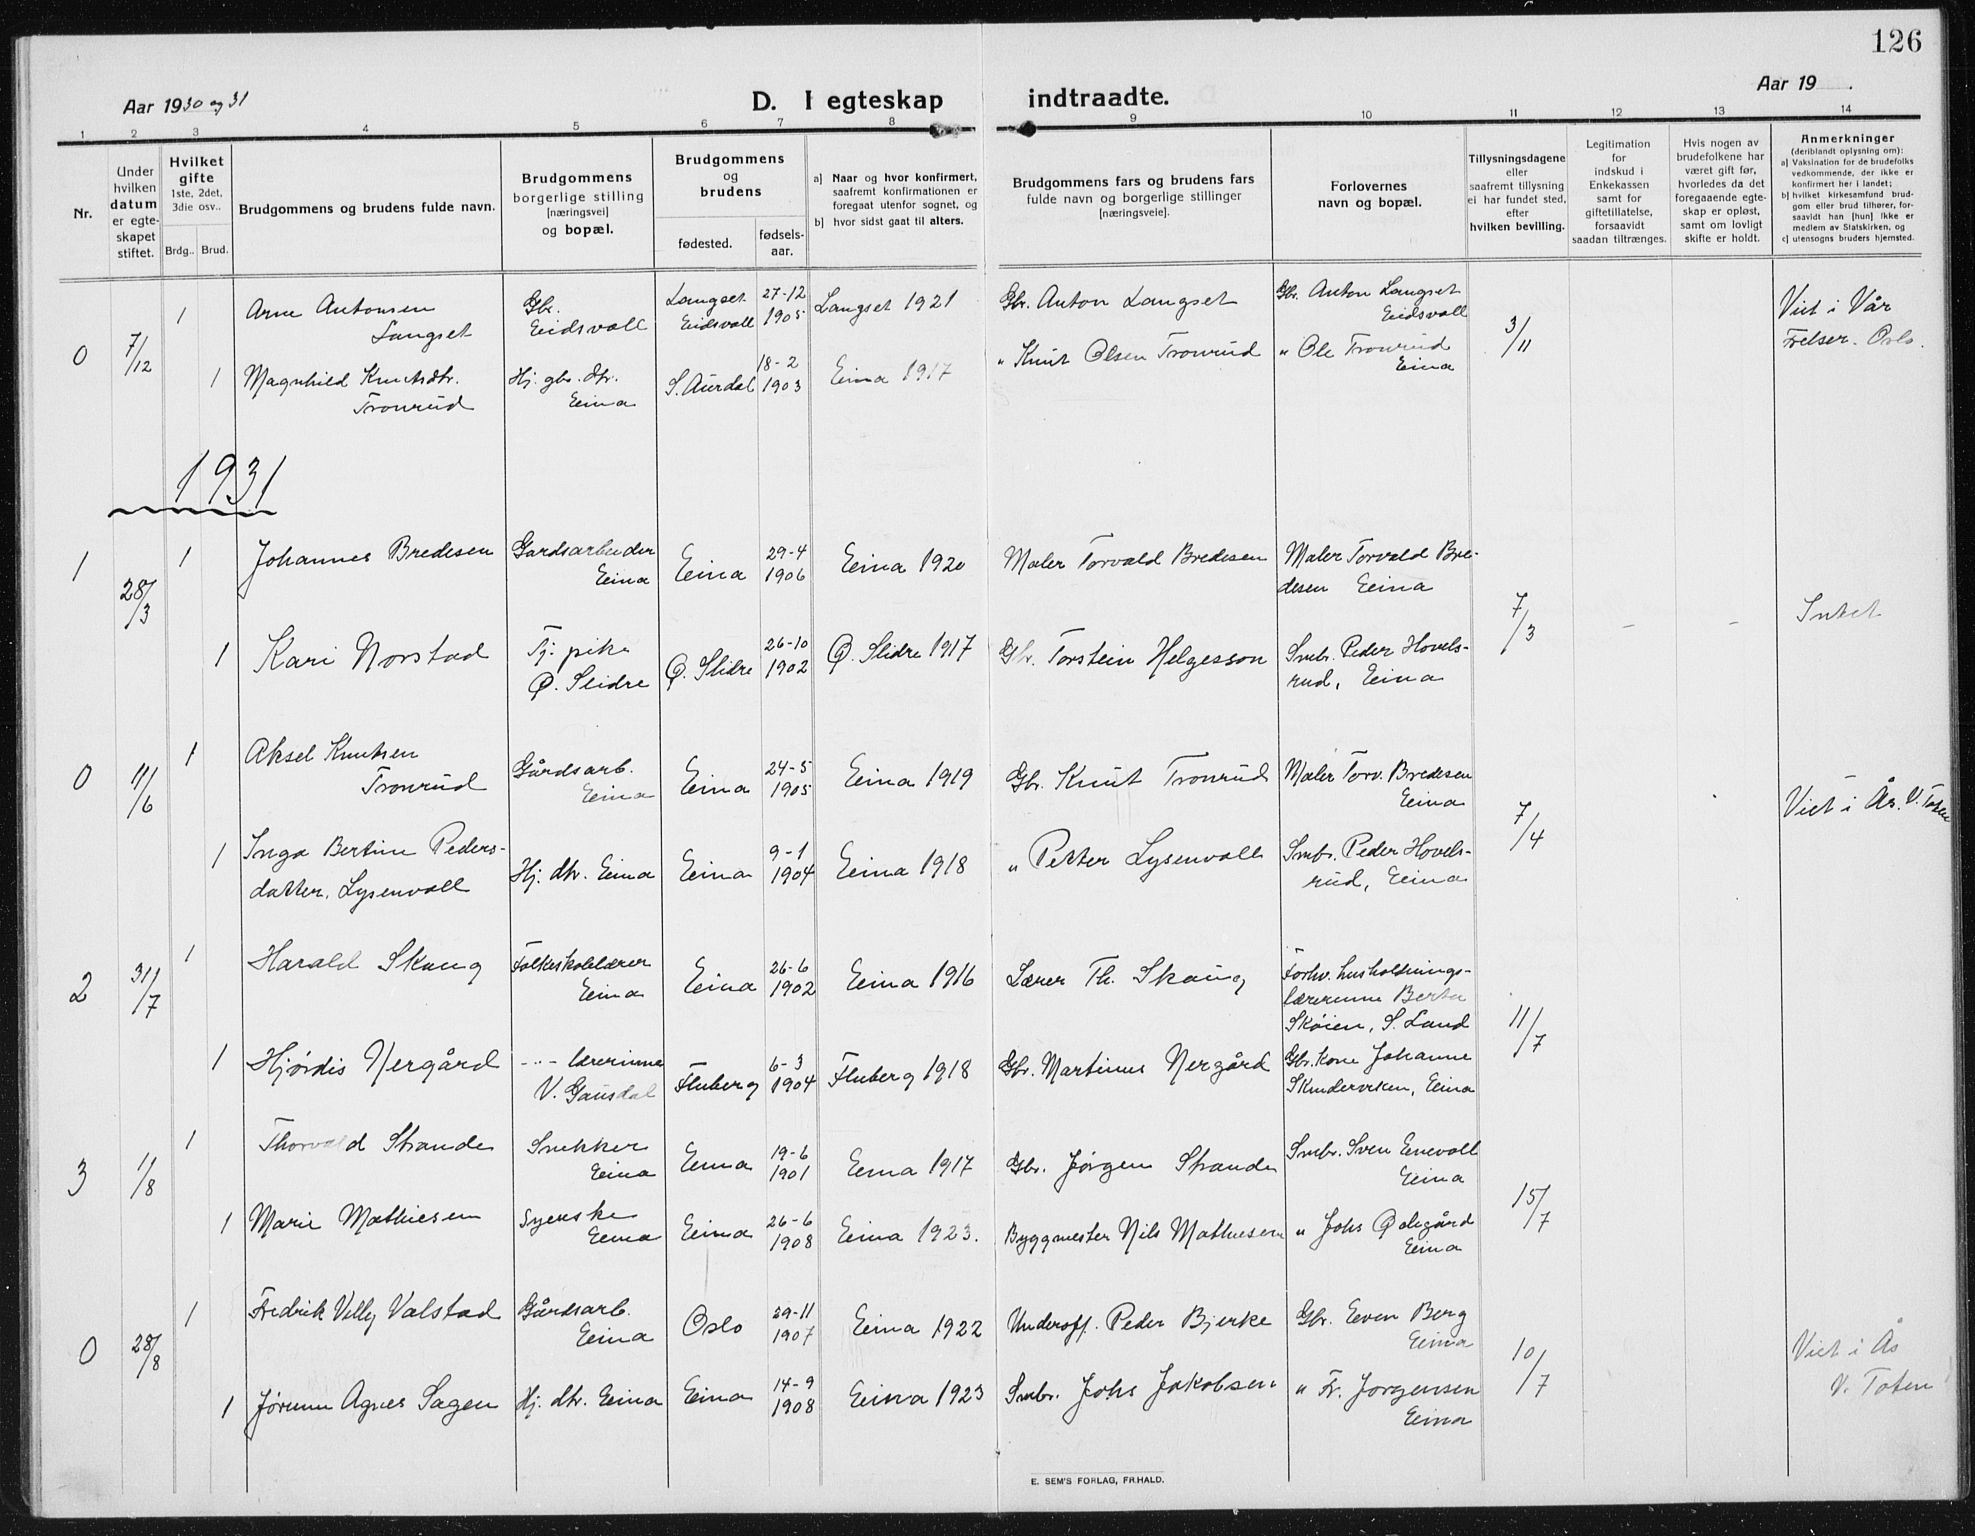 126
Aar 1930 og 31
D. I egteskap indtraadte.
Aar 19 .
1 2 3 4 5 6 7 8 9 10 11 12 13 14
Nr.
Under hvilken datum er egteskapet stiftet.
Hvilket gifte
1ste, 2det, 3die osv..
Brdg.. Brud.
Brudgommens og brudens fulde navn.
Brudgommens borgerlige stilling [næringsvei] og bopæl.
Brudgommens og brudens
fødested.
fødselsaar.
a] Naar og hvor konfirmert, saafremt konfirmationen er foregaat utenfor sognet, og
b] hvor sidst gaat til alters.
Brudgommens fars og brudens fars fulde navn og borgerlige stillinger [næringsveie].
Forlovernes navn og bopæl.
Tillysningsdagene eller saafremt tillysning ei har fundet sted, efter hvilken bevilling.
Legitimation for indskud i Enkekassen samt for giftetillatelse, forsaavidt saadan tiltrænges.
Hvis nogen av brudefolkene har været gift før, hvorledes da det foregaaende egteskap er opløst, samt om lovligt skifte er holdt.
Anmerkninger
(deriblandt oplysning om):
a] Vaksination for de brudefolks vedkommende, der ikke er konfirmert her i landet;
b] hvilket kirkesamfund brudgom eller brud tilhører, forsaavidt han [hun] ikke er medlem av Statskirken, og
c] utensogns bruders hjemsted.
0 7/12
1 Arne Antonsen Langset
Gbr. Eidsvoll
Langset Eidsvoll
27-12 1905
Langset 1921
Gbr. Anton Langset
Gbr. Anton Langset Eidsvoll
3/11
Viet i Vår Frelser. Oslo.
1 Magnhild Knutsdtr. Tronrud
Hj. gbr. dtr. Eina
S. Aurdal
18-2 1903
Eina 1917
" Knut Olsen Tronrud
" Ole Tronrud Eina
1931
1 28/3
1 Johannes Bredesen
Gardsarbeider Eina
Eina
29-4 1906
Eina 1920
Maler Torvald Bredesen
Maler Torvald Bredesen Eina
7/3
-
-
Intet
1 Kari Norstad
Tj. pike Ø. Slidre
Ø. Slidre
26-10 1902
Ø. Slidre 1917
Gbr. Torstein Helgesson
Smbr. Peder Hovelsrud, Eina
0 11/6
1 Aksel Knutsen Tronrud
Gårdsarb. Eina
Eina
24-5 1905
Eina 1919
Gbr. Knut Tronrud
Maler Torv. Bredesen Eina
7/4
Viet i Ås. V. Toten
1 Inga Bertine Pedersdatter. Lysenvoll
Hj. dtr. Eina
Eina
9-1 1904
Eina 1918
" Petter Lysenvoll
Smbr. Peder Hovelsrud, Eina
2 31/7
1 Harald Skaug
Folkeskolelærer Eina
Eina
26-6 1902
Eina 1916
Lærer Th. Skaug
Forhv. husholdningslærerinne Berta Skøien, S. Land
11/7
1 Hjørdis Nergård
-"- lærerinne V. Gausdal
Fluberg
6-3 1904
Fluberg 1918
Gbr. Martinus Nergård
Gbr. kone Johanne Skunderviken, Eina
3 1/8
1 Thorvald Strande
Snekker Eina
Eina
19-6 1901
Eina 1917
Gbr. Jørgen Strande
Smbr. Sven Einevoll Eina
15/7
1 Marie Mathiesen
Syerske Eina
Eina
26-6 1908
Eina 1923.
Byggmester Nils Mathiesen
" Johs Ødegård Eina
0 28/8
1 Fredrik Villy Valstad
Gårdsarb. Eina
Oslo
29-11 1907
Eina 1922
Underoff. Peder Bjerke
Gbr. Even Berg Eina
10/7
Viet i Ås V. Toten
1 Jørunn Agnes Sagen
Hj. dtr. Eina
Eina
14-9 1908
Eina 1923
Smbr. Johs Jakobsen
" Fr. Jorgensen Eina
E. SEM'S FORLAG, FR.HALD.